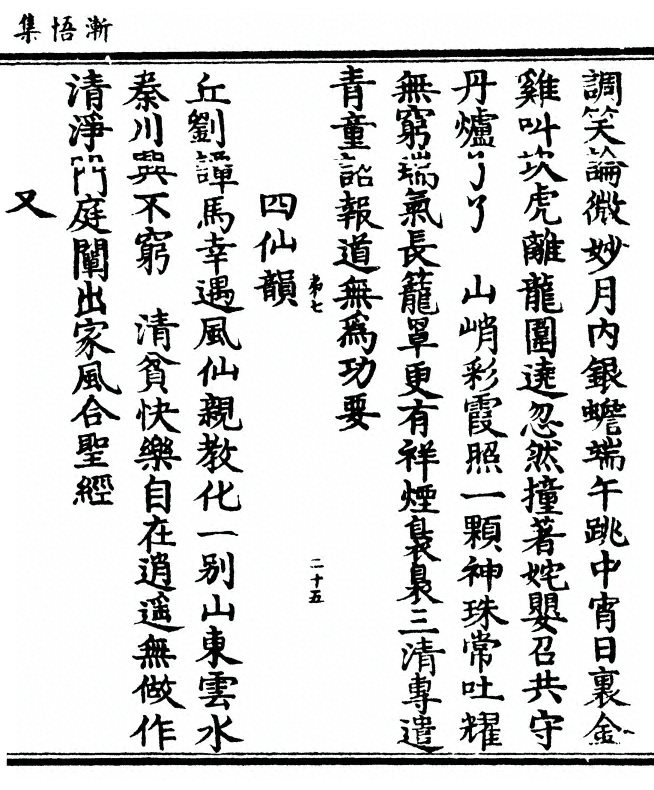 漸悟集
調笑論微妙月内銀蟾端午跳中宵日裏金
雞叫坎虎離龍圍遶忽然撞著姹嬰召共守
丹爐了了　山峭彩霞照一顆神珠常吐耀
無窮瑞氣長籠罩更有祥煙裊裊三清專遣
青童詔報道無爲功要
弟七
二十五
四仙韻
丘劉譚馬幸遇風仙親教化一别山東雲水
秦川興不窮　清貧快樂自在逍遥無做作
清淨門庭闡出家風合聖經
又